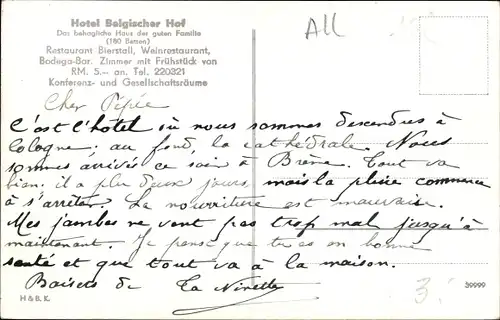 Hotel Belgischer Hof
Das behagliche Haus der guten Familie
(180 Betten)
Restaurant Bierstall, Weinrestaurant,
Bodega-Bar. Zimmer mit Frühstück von
RM. 5.-- an. Tel. 220321
Konferenz- und Gesellschaftsräume
All
Cher Pépée
C'est l'hôtel où nous sommes descendus à
Cologne; au fond, la cathédrale. Nous
sommes arrivés ce soir à Brême. Tout va
bien; il a plu deux jours, mais la pluie commence
à s'arrêter. La nourriture est mauvaise.
Mes jambes ne vont pas trop mal jusqu'à
maintenant. Je pense que tu es en bonne
santé et que tout va à la maison.
Baisers de Ta Ninette
H & B. K.
3.-
39999